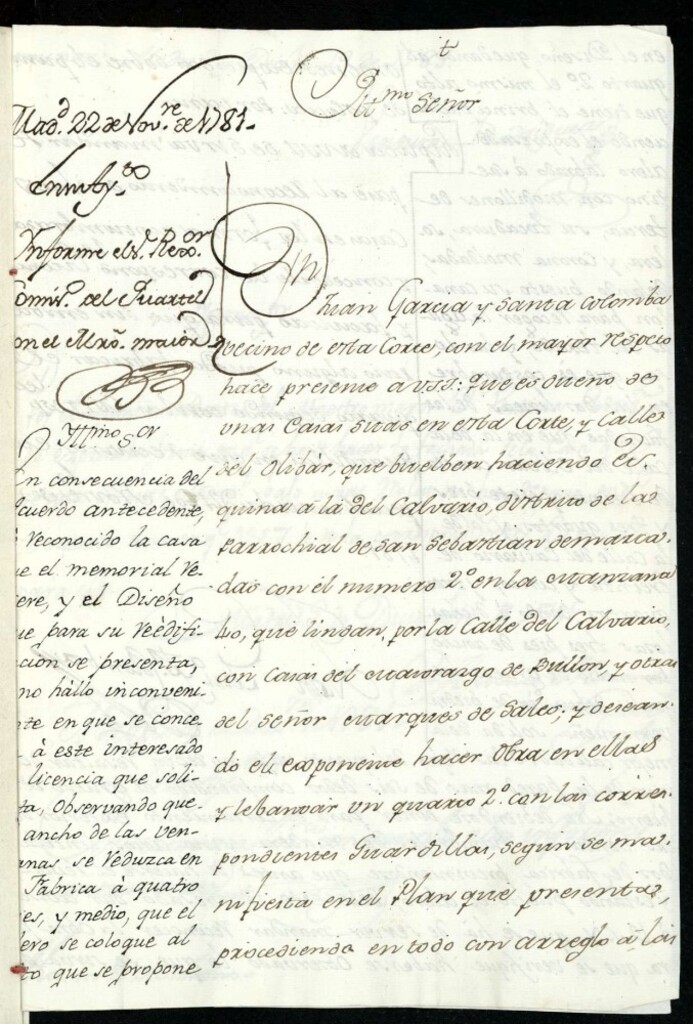 t
Yll.mo Señor
Mad.d 22 de Nov.re de 1781.
En su Ay.to
Informe el S.r Rex.or
Comis.o del Quartel
con el Mrô. maior
Yll.mo S.or
En consecuencia del
acuerdo antecedente,
reconocido la casa
que el memorial re-
fiere, y el Diseño
que para su reedifi-
cacion se presenta,
no hállo inconveni-
ente en que se conce
à este interesado
licencia que soli-
ta, Observando que
ancho de las ven-
anas se reduzca en
Fabrica à quatro
pies, y medio, que el
alero se coloque al
to que se propone
Dn Juan Garcia y Santa Colomba
vecino de esta Corte, con el mayor respeto
hace presente a VSI: que es dueño de
unas Casas sitas en esta Corte, y Calle
del Olibár, que buelben haciendo Es-
quina à la del Calvario, distrito de la
Parrochial de San Sebastian demarca-
das con el numero 2.º en la Manzana
40, que lindan, por la Calle del Calvario,
con Casas del Maiorazgo de Bullon, y otras
del Señor Marqués de Sales; y desean-
do el exponente hacer Obra en ellas
y lebantar un quarto 2.º con las corres-
pondientes Guardillas, segun se ma-
nifiesta en el Plan que presenta,
procediendo en todo con arreglo à las